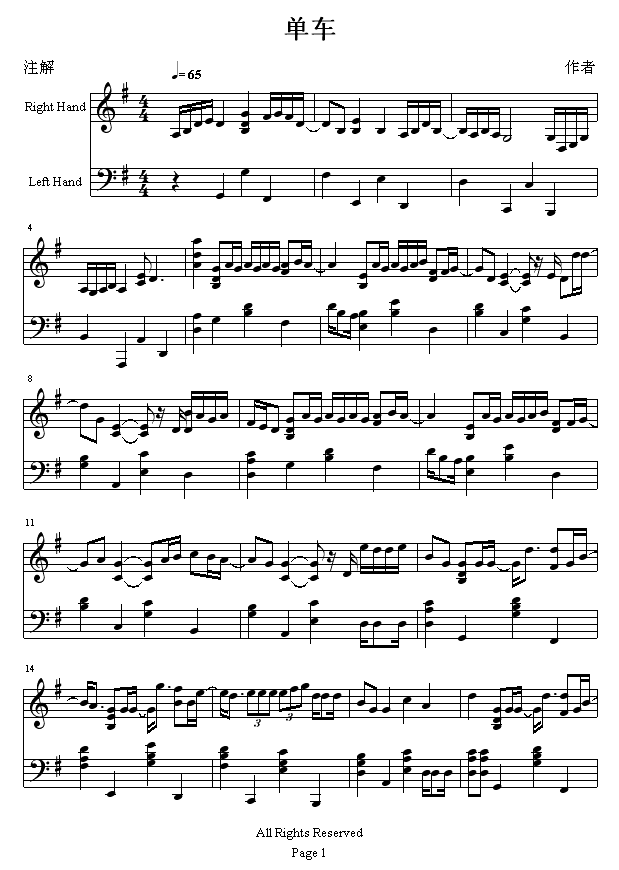 单车
注解
作者
♩= 65
Right Hand
4
4
Left Hand
4
4
4
8
11
14
3
3
All Rights Reserved
Page 1